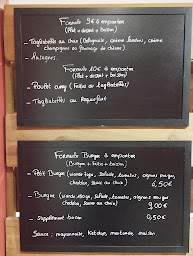 Formule 9€ à emporter
(Plat + dessert + boisson)
- Tagliatelles au choix (Bolognaise, crème lardons, crème
champignons ou fromage de chèvre)
- Lasagnes.
Formule 10€ à emporter
(Plat + dessert + boisson)
- Poulet curry (frites ou tagliatelles)
- Tagliatelles au Roquefort
Formule Burger à emporter
(Burger + frites + boisson)
- Petit Burger (viande 100g, salade, tomates, oignons rouges,
cheddar, sauce au choix) 6,50€
- Burger (viande 180g, salade, tomates, oignons rouges
cheddar, sauce au choix) 9,00€
- supplément bacon 0,50€
Sauce : mayonnaise, Ketchup, moutarde, maison.